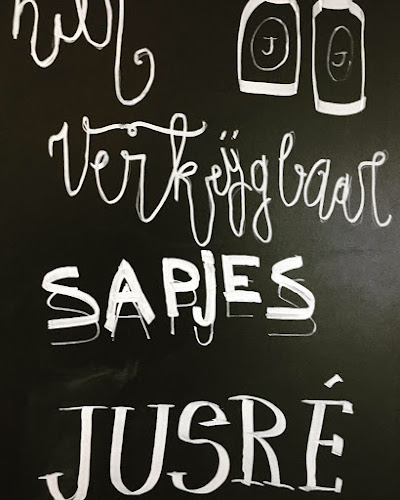 J J
verkijgbaar
SAPJES
JUSRÉ